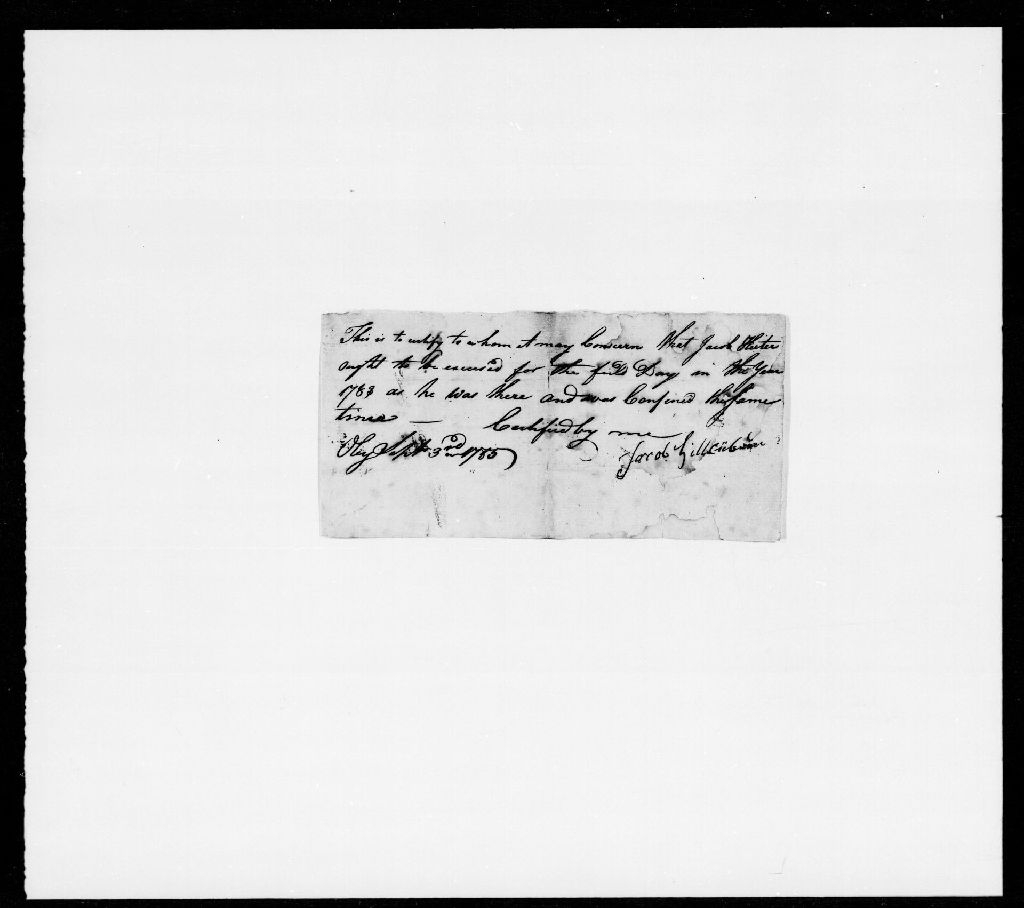 This is to certify to whom it may Concern that Jacob Hister
ought to be excused for the field Day in the Year
1783 as he was there and was Confined the same
time — Certified by me
Oley Sept. 3rd 1785 Jacob